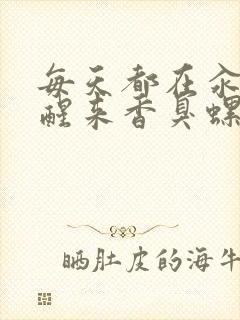 每天都在汆
醒来香臭螺
晒肚皮的海牛